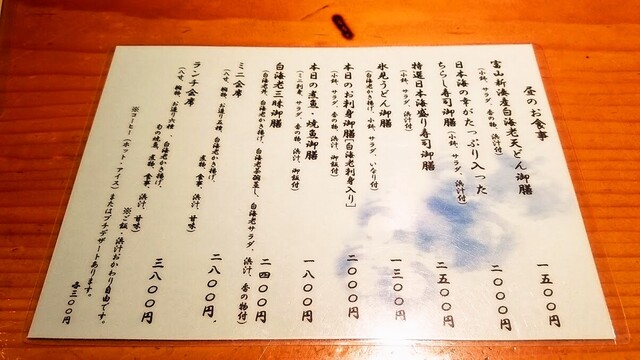 昼のお食事
富山新湊産白海老天どん御膳 一五〇〇円
(小鉢、サラダ、香の物、浜汁付)
日本海の幸がたっぷり入った
ちらし寿司御膳(小鉢、サラダ、浜汁付) 二〇〇〇円
特選日本海盛り寿司御膳 二五〇〇円
(小鉢、サラダ、浜汁付)
氷見うどん御膳 一三〇〇円
(白海老かき揚げ、小鉢、サラダ、いなり付)
本日のお刺身御膳「白海老刺身入り」 二〇〇〇円
(小鉢、サラダ、香の物、浜汁、御飯付)
本日の煮魚・焼魚御膳 一八〇〇円
(ミニ刺身、サラダ、香の物、浜汁、御飯付)
白海老三昧御膳 二四〇〇円
(白海老丼、白海老かき揚げ、白海老茶碗蒸し、白海老サラダ、浜汁、香の物付)
ミニ会席 二八〇〇円
(八寸、椀物、お造り五種、白海老かき揚げ、煮物、食事、浜汁、甘味)
ランチ会席 三八〇〇円
(八寸、椀物、お造り六種、白海老かき揚げ、旬の焼魚、煮物、食事、浜汁、甘味)
※ご飯・浜汁おかわり自由です。
※コーヒー(ホット・アイス)またはプチデザートあります。
各三〇〇円